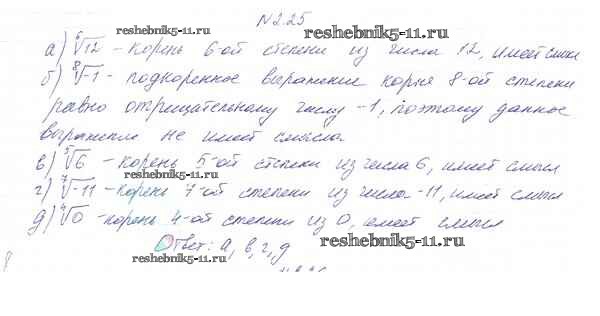 №2.25
reshebnik5-11.ru
reshebnik5-11.ru
а) ⁶√12 - корень 6-ой степени из числа 12, имеет смысл
б) ⁸√-1 - подкоренное выражение корня 8-ой степени
равно отрицательному числу -1, поэтому данное
выражение не имеет смысла.
reshebnik5-11.ru
reshebnik5-11.ru
в) ⁵√6 - корень 5-ой степени из числа 6, имеет смысл
г) ⁷√-11 - корень 7-ой степени из числа -11, имеет смысл
д) ⁴√0 - корень 4-ой степени из 0, имеет смысл
Ответ: а, в, г, д
reshebnik5-11.ru
reshebnik5-11.ru